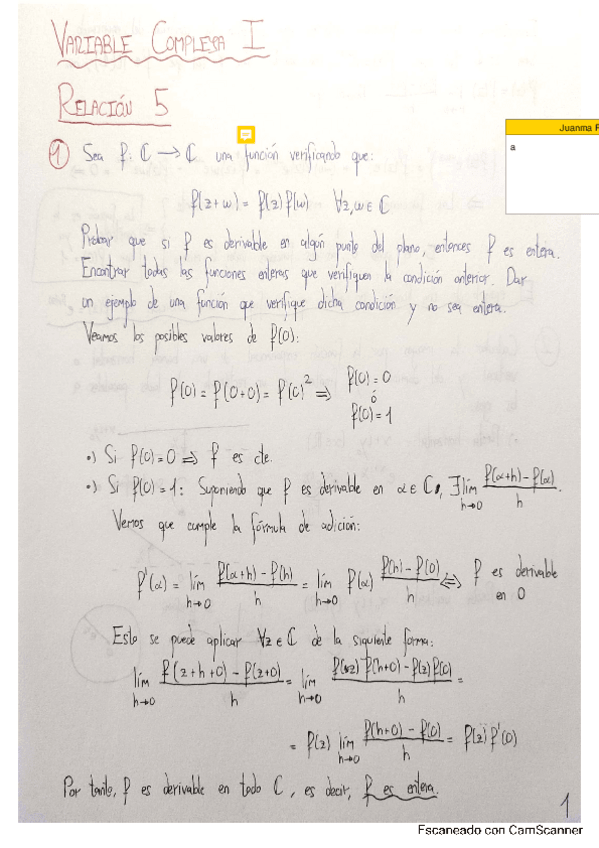 VARIABLE COMPLEJA I
RELACIÓN 5
Juanma F
a
① Sea f: ℂ → ℂ una función verificando que:
f(z+w) = f(z)f(w) ∀z,w ∈ ℂ
Probar que si f es derivable en algún punto del plano, entonces f es entera.
Encontrar todas las funciones enteras que verifiquen la condición anterior. Dar
un ejemplo de una función que verifique dicha condición y no sea entera.
Veamos los posibles valores de f(0):
f(0) = f(0+0) = f(0)² ⇒ f(0)=0
ó
f(0)=1
•) Si f(0)=0 ⇒ f es cte.
•) Si f(0)=1: Suponiendo que f es derivable en α ∈ ℂ, ∃ lím h→0 f(α+h)-f(α) / h.
Vemos que cumple la fórmula de adición:
f'(α) = lím h→0 f(α+h)-f(h) / h = lím h→0 f(α) f(h)-f(0) / h ⇔ f es derivable
en 0
Esto se puede aplicar ∀z ∈ ℂ de la siguiente forma:
lím h→0 f(z+h+0)-f(z+0) / h = lím h→0 f(z) f(h+0)-f(z)f(0) / h =
= f(z) lím h→0 f(h+0)-f(0) / h = f(z) f'(0)
Por tanto, f es derivable en todo ℂ, es decir, f es entera.
1
Escaneado con CamScanner